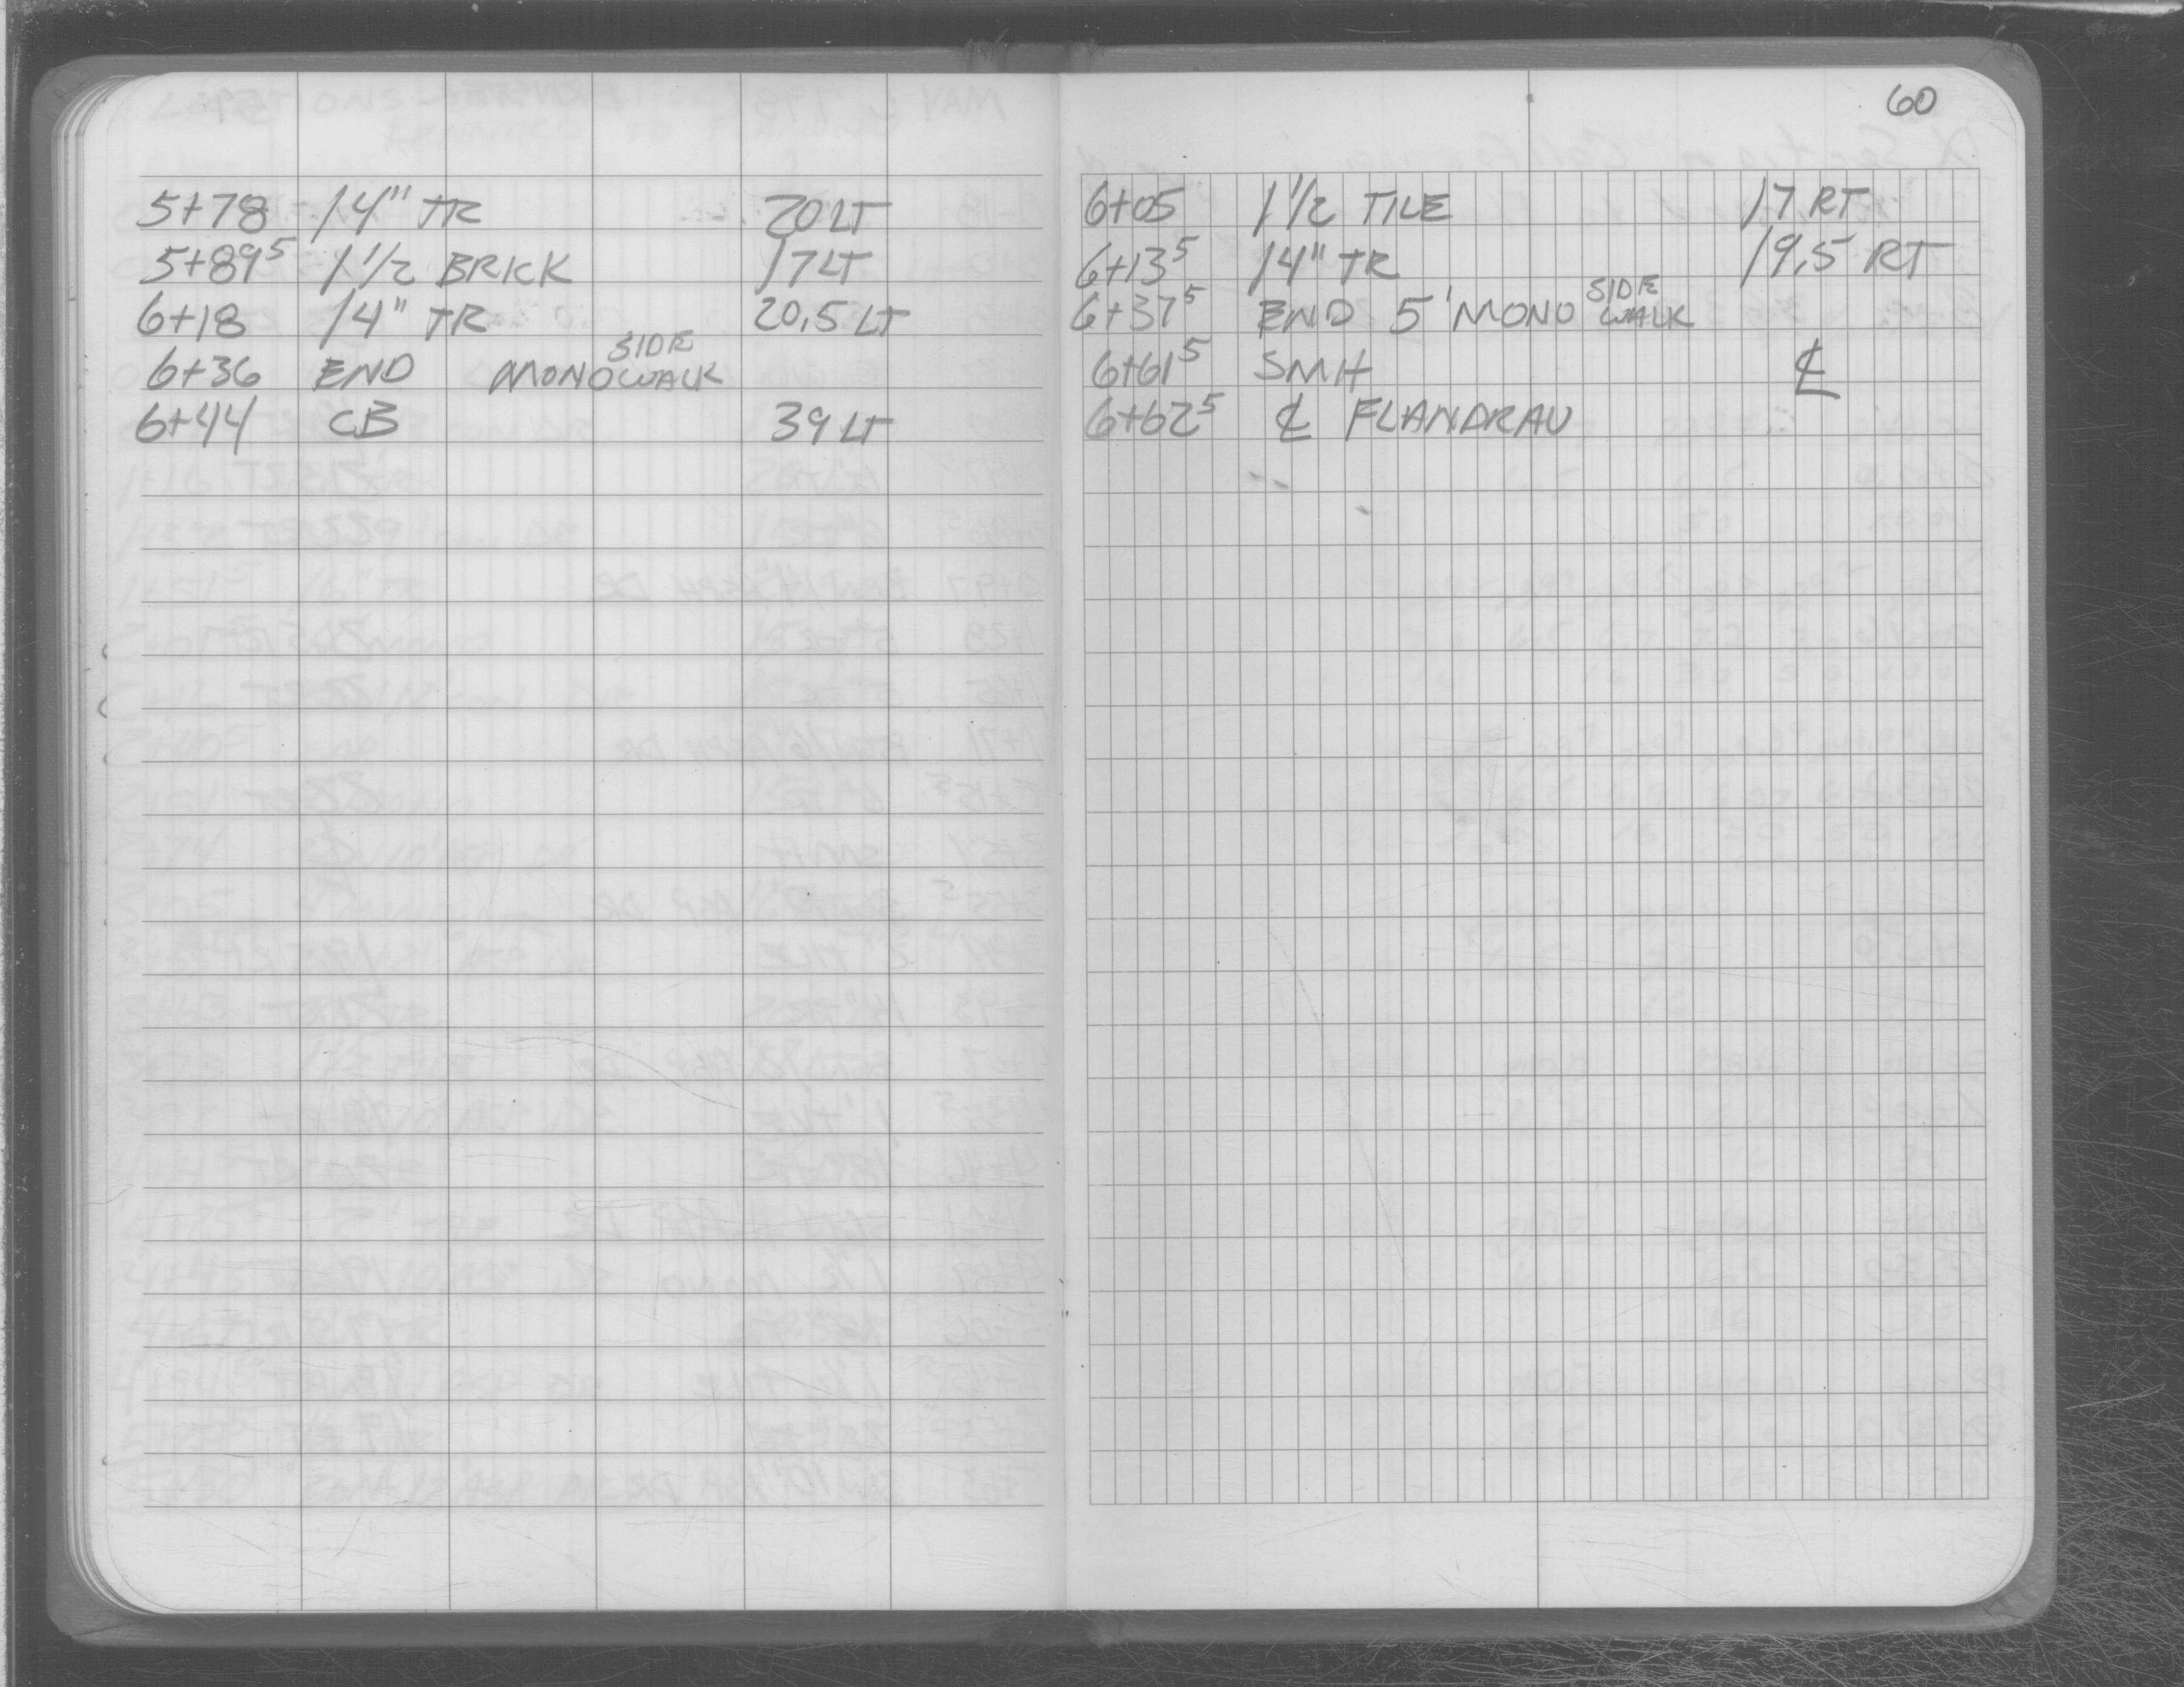 5+78 14" TR 20 LT
5+89⁵ 1 1/2 BRICK 17 LT
6+18 14" TR 20.5 LT
6+36 END MONO SIDE WALK
6+44 CB 39 LT
60
6+05 1 1/2 TILE 17 RT
6+13⁵ 14" TR 19.5 RT
6+37⁵ END 5' MONO SIDE WALK
6+61⁵ SMH ℄
6+62⁵ ℄ FLANDRAU